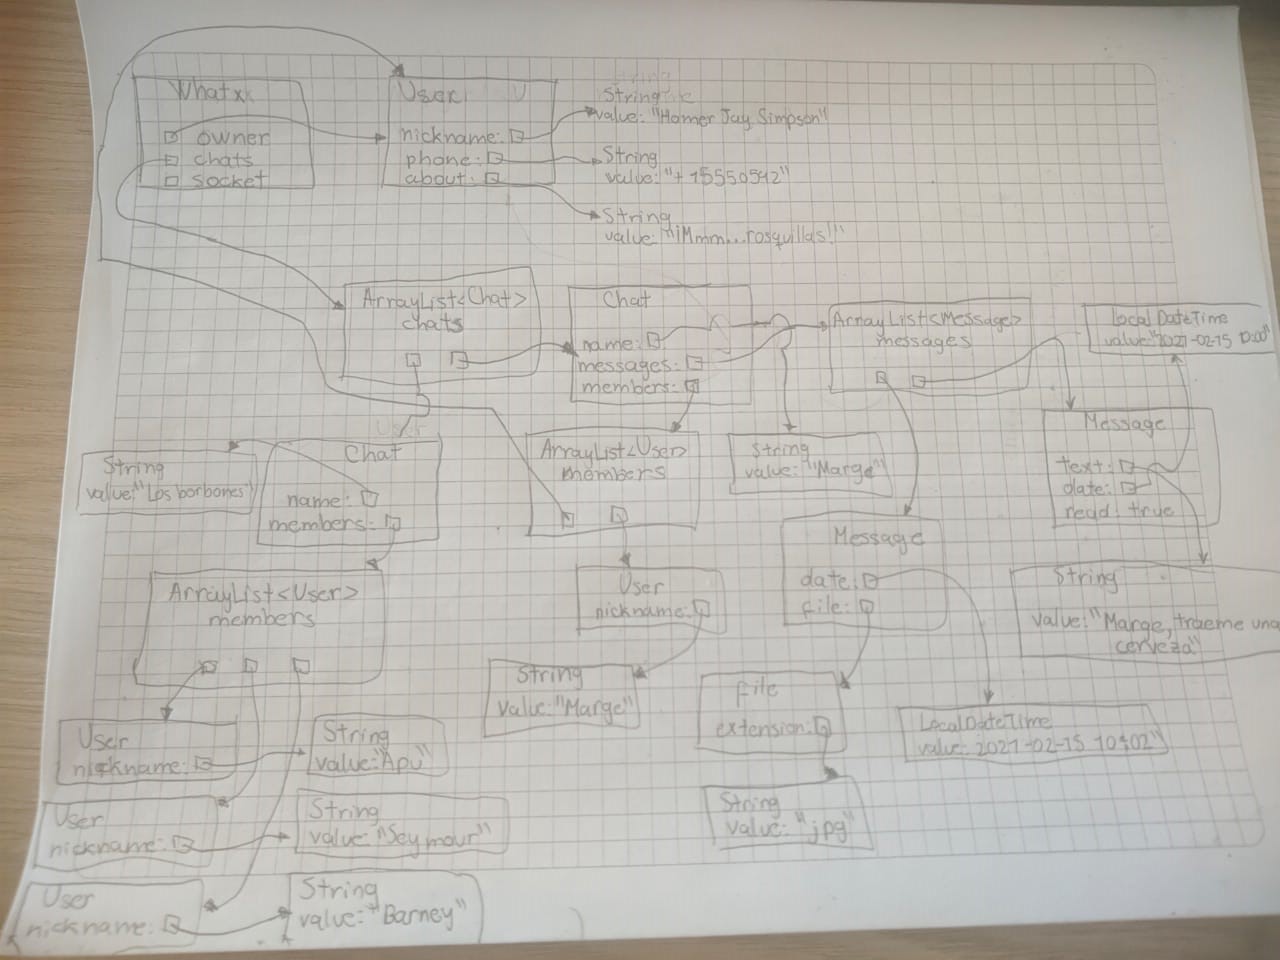 Whatx
owner
chats
socket
User
nickname:
phone:
about:
String
value: "Homer Jay Simpson"
String
value: "+15550542"
String
value: "¡Mmm...rosquillas!"
ArrayList<Chat>
chats
Chat
name:
messages:
members:
ArrayList<Message>
messages
LocalDateTime
value: "2021-02-15 10:00"
Message
text:
date:
read: true
String
value: "Marge, tráeme una
cerveza"
String
value: "Los borbones"
User
Chat
name:
members:
ArrayList<User>
members
String
value: "Marge"
Message
date:
file:
ArrayList<User>
members
User
nickname:
String
value: "Marge"
file
extension:
LocalDateTime
value: 2021-02-15 10:02"
String
value: "jpg"
User
nickname:
String
value: "Apu"
User
nickname:
String
value: "Seymour"
User
nickname:
String
value: "Barney"